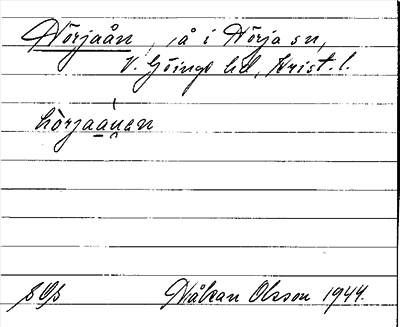 Hörjaån, å i Hörja sn,
V. Göinge hd, Krist. l.
hòrjaau̯en
Håkan Olsson 1944.